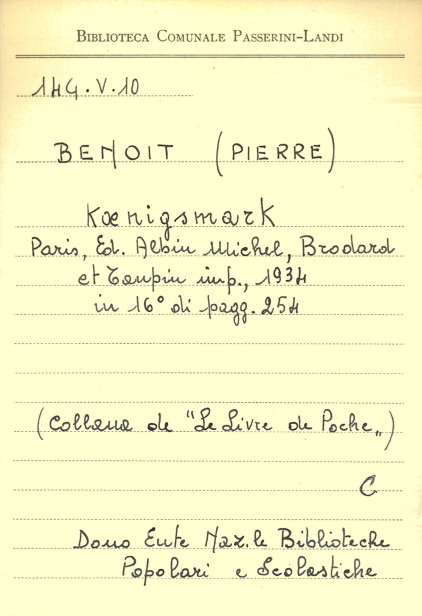 BIBLIOTECA COMUNALE PASSERINI-LANDI
14G.V.10
BENOIT (PIERRE)
Kœnigsmark
Paris, Ed. Albin Michel, Brodard
et Taupin imp., 1934
in 16° di pagg. 254
(Collana de "Le Livre de Poche„)
C
Dono Ente Naz.le Biblioteche
Popolari e Scolastiche